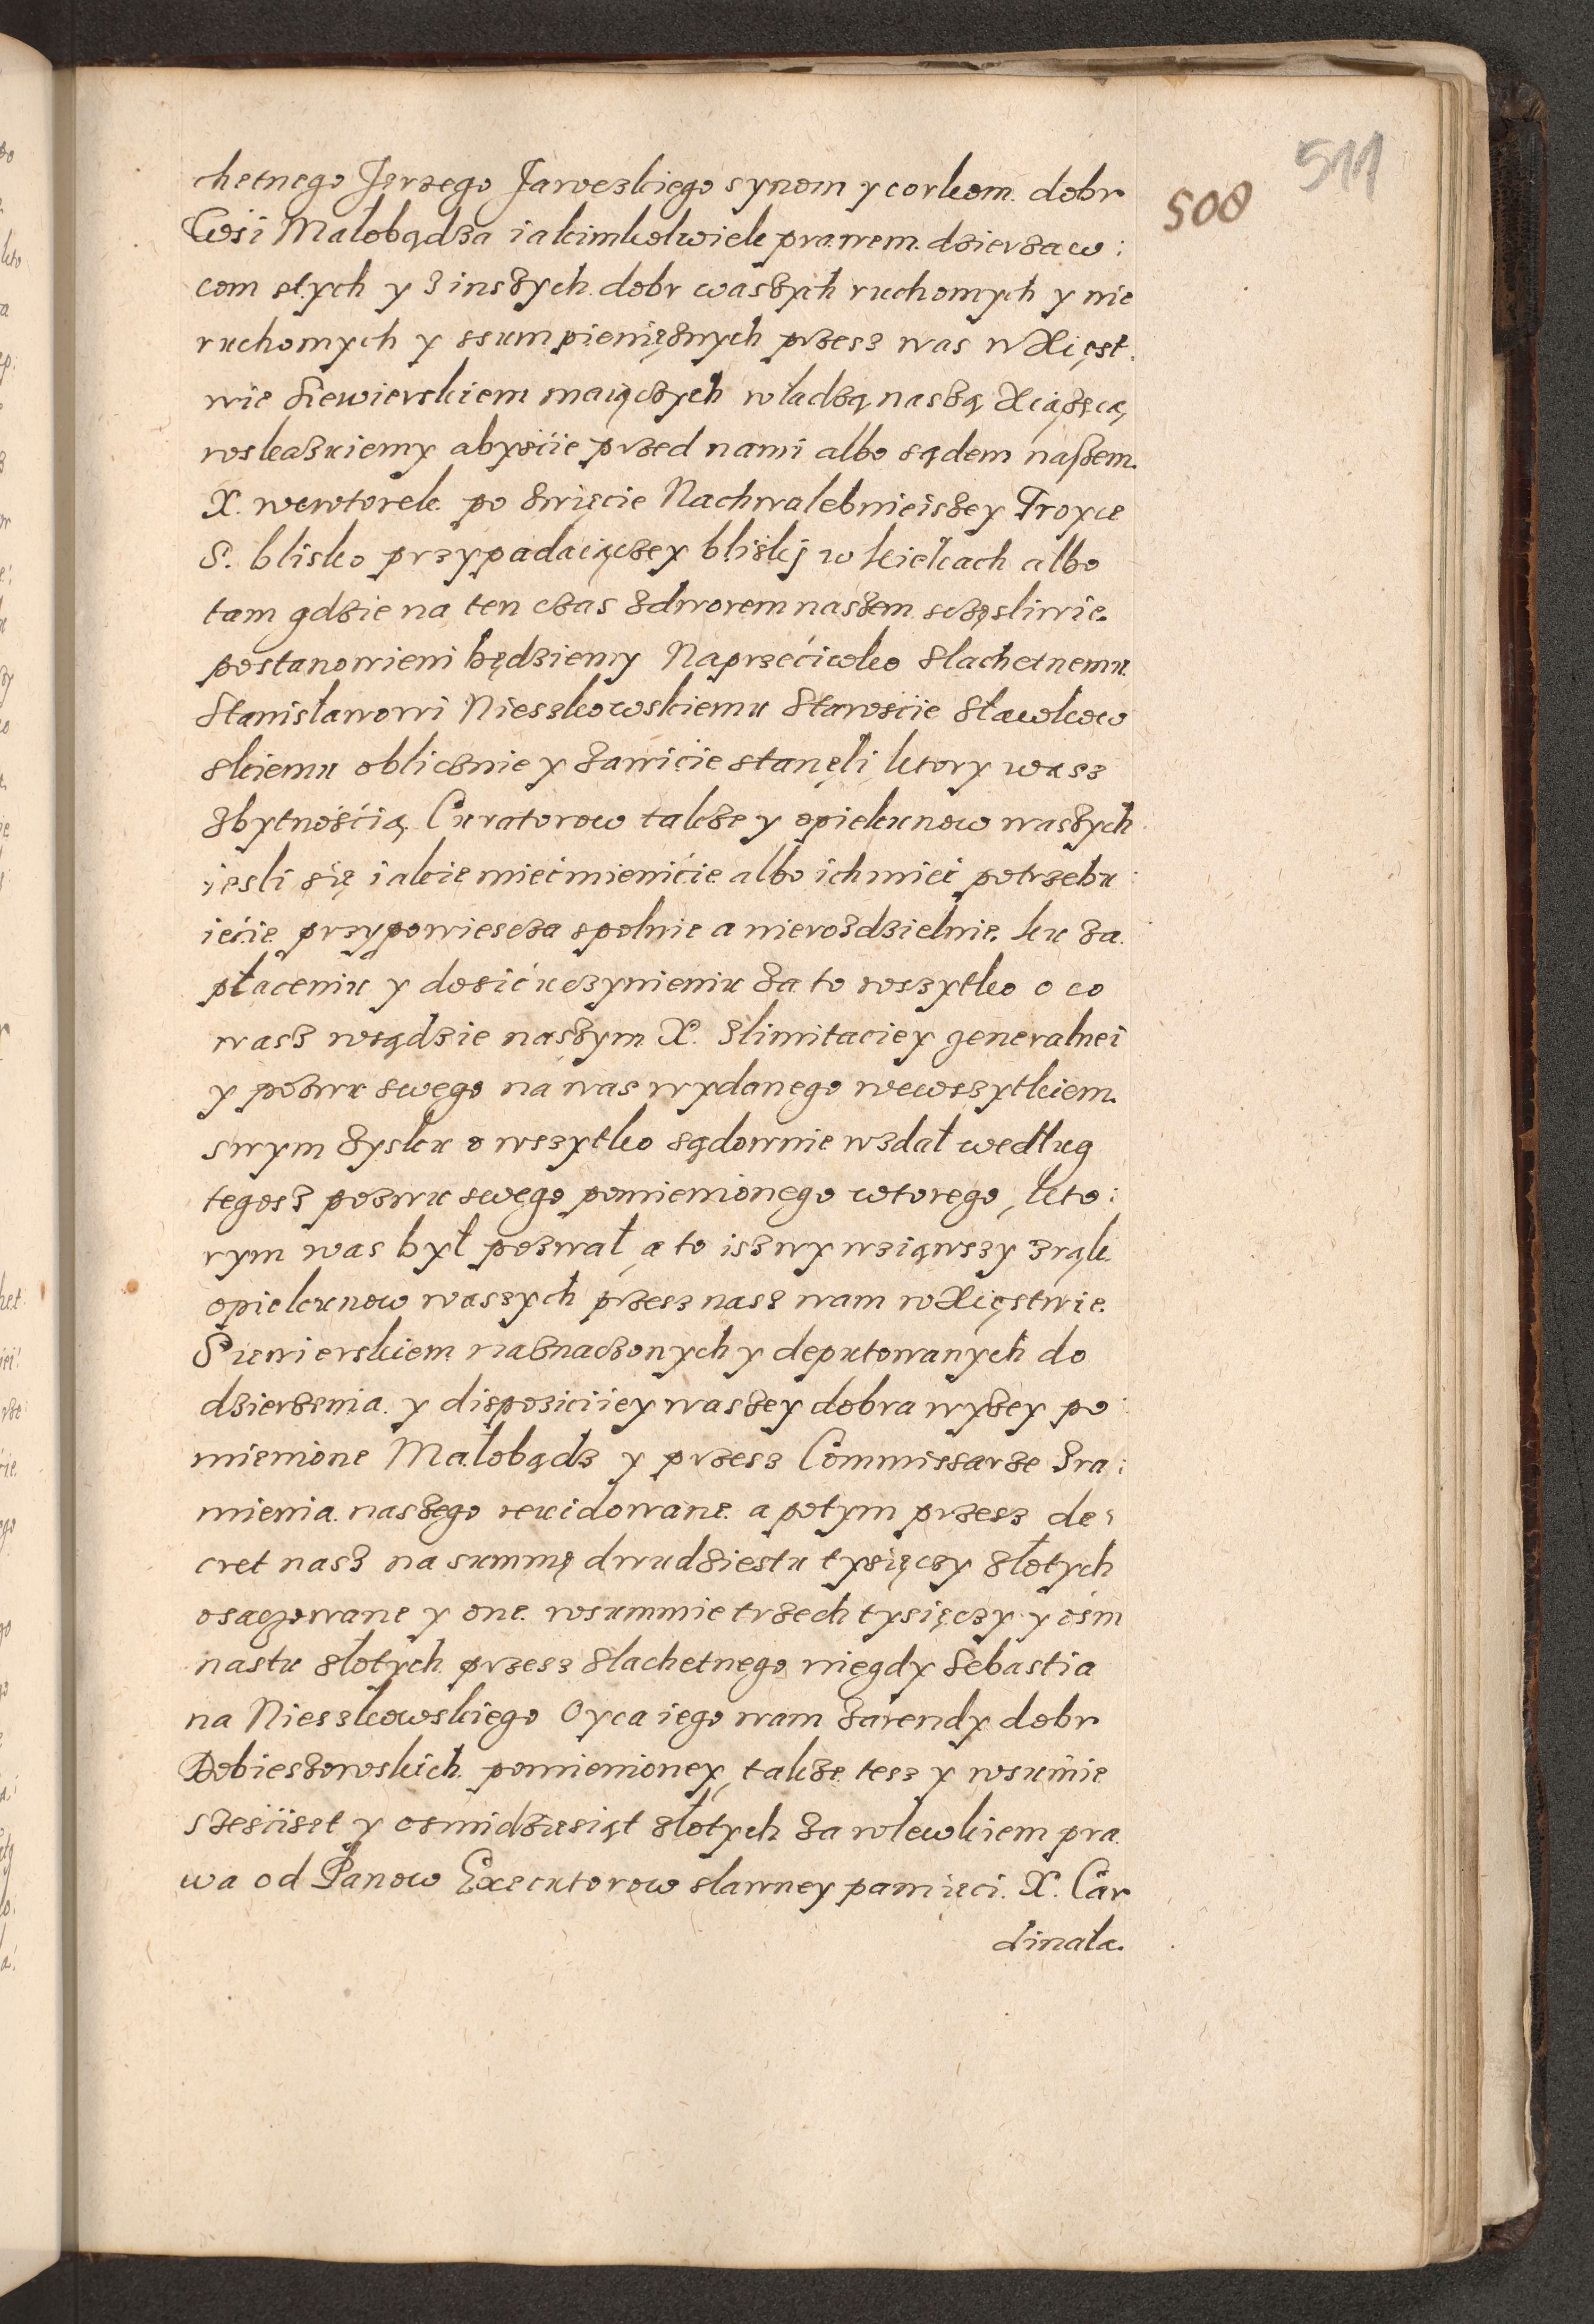 511
508
chetnego Jerzego Jaroczkiego synom y corkom dobr
Wsi Małobądza iakimkolwiek prawem dzierzaw:
com stych y z inszych dobr waszych ruchomych y nie
ruchomych y ssum pieniężnych przesz was w Xięst
wie Siewierskiem maiączych władzą naszą Xiążęcą
roskazuiemy abyście przed nami albo sądem naszem
X. wewtorek po Swięcie Nachwalebnieiszey Troyce
S. blisko przypadaiączey bliskj w Kielcach albo
tam gdzie na ten czas zdworem naszem sczęsliwie
postanowieni będziemy Naprzeciwko Slachetnemu
Stanisławowi Nieszkowskiemu Staroście Sławkow
skiemu oblicznie y zawicie stanęli ktory wasz
zbytnością Curatorow takze y opiekunow waszych
iesli się iakie mieć mienicie albo ich mieć potrzebu:
iecie przypowiescza spolnie a nierozdzielnie ku za
płaceniu y dosić uczynieniu za to wszytko o co
wasz wsądzie naszym X. zlimitaciey generalnei
y pozwu swego na was wydanego wewszytkiem
swym zysku o wszytko sądownie wzdał według
tegosz pozwu swego pomienionego wtorego, kto:
rym was był pozwał, a to isz wy wziąwszy z rąk
opiekunow waszych przesz nasz wam w Xięstwie
Siewierskiem naznaczonych y deputowanych do
dzierzenia y disposiciiey waszey dobra wyzey po:
mienione Małobądz y przesz Commissarze zra:
mienia naszego rewidowane a potym przesz de:
cret nasz na summę dwudziestu tysięczy złotych
osaczowane y one wsummie trzech tysięczy y ośm
nastu złotych przesz Slachetnego niegdy Sebastia
na Nieszkowskiego Oyca iego wam zarendy dobr
Dobieszowskich pomienioney, takze tesz y wsumie
szesciset y osmidziesiąt złotych za wlewkiem pra
wa od Panow Executorow sławney pamięci X. Car
dinała.